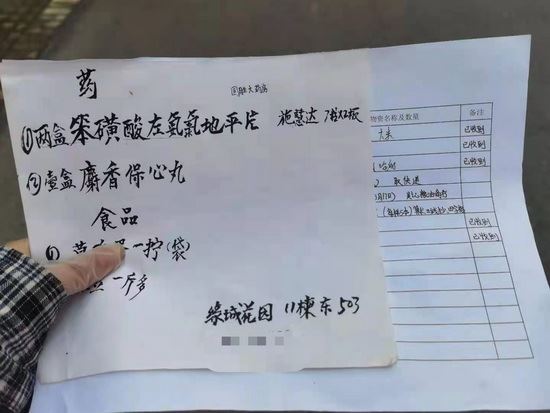 药
国胜大药房
①两盒笨磺酸左氨氯地平片 施慧达 7片X2板
②壹盒麝香保心丸
食品
① 一拧(袋)
一斤多
绿城花园 11栋东503
物资名称及数量 备注
大米 已收到
已收到
取快递
已收到
已收到